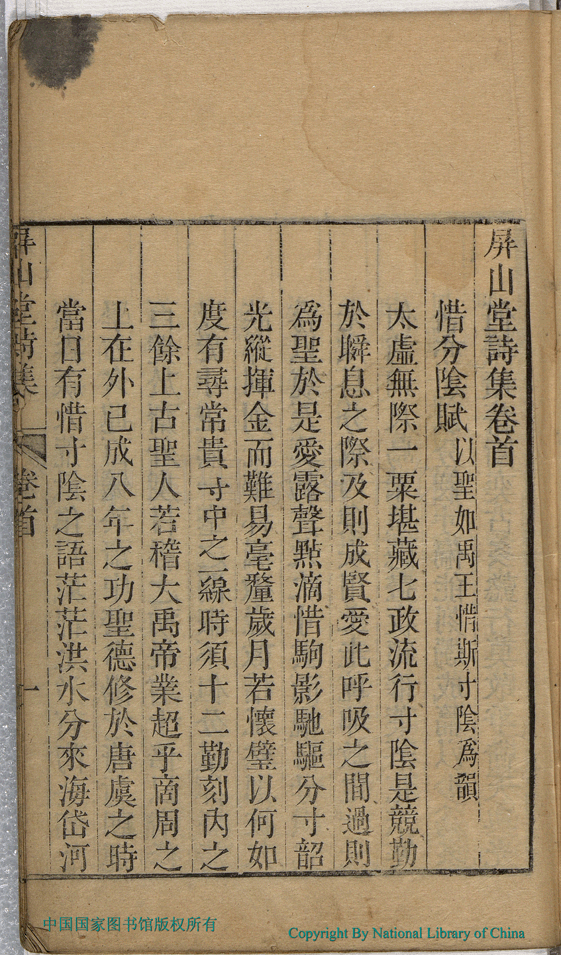 屏山堂詩集卷首
惜分陰賦 以聖如禹王惜斯寸陰為韻
太虛無際一粟堪藏七政流行寸陰是競勤
於瞬息之際及則成賢愛此呼吸之間過則
為聖於是愛露聲點滴惜駒影馳驅分寸韶
光縱揮金而難易毫釐歲月若懷璧以何如
度有尋常貴寸中之一線時須十二勤刻內之
三餘上古聖人若稽大禹帝業超乎商周之
上在外已成八年之功聖德修於唐虞之時
當日有惜寸陰之語茫茫洪水分來海岱河
屏山堂詩集
卷首
一
中国国家图书馆版权所有
Copyright By National Library of China